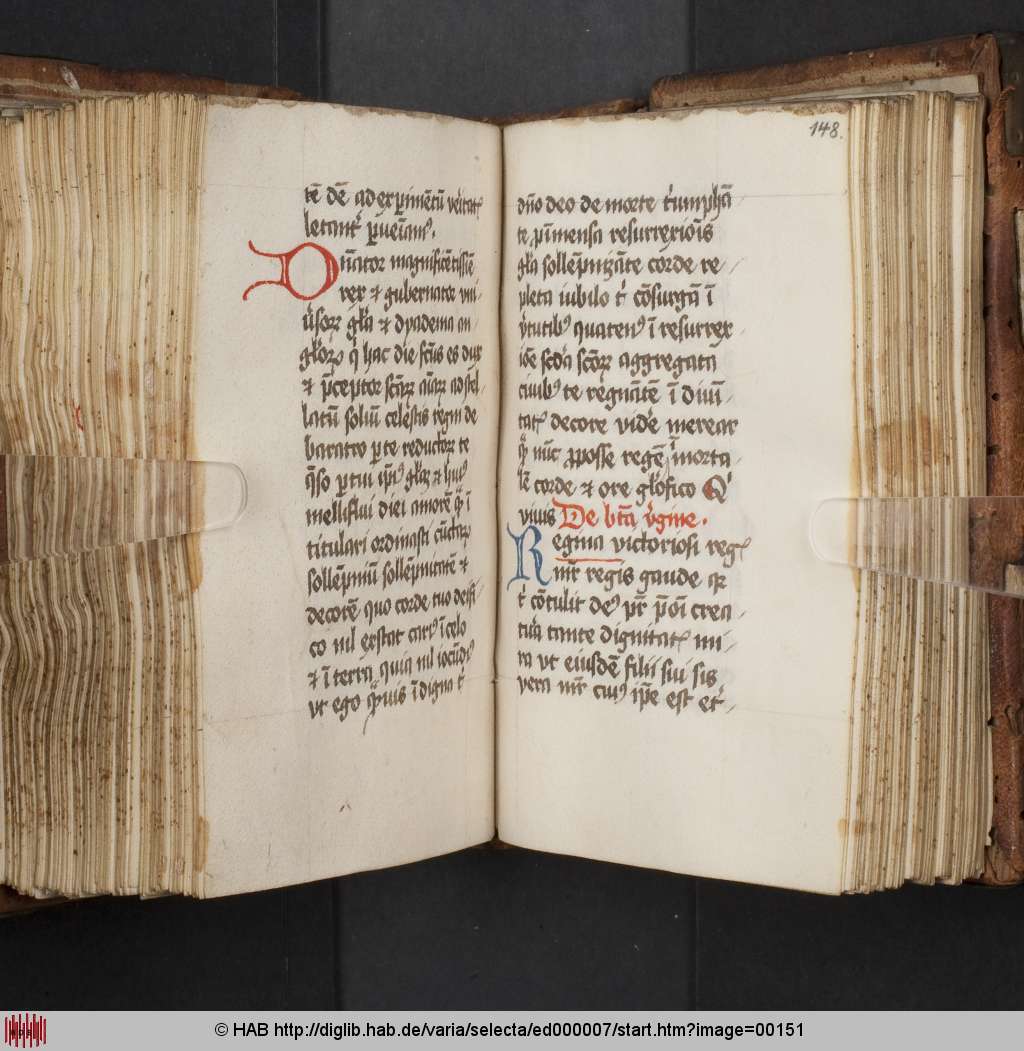 tē dē ad exꝑimētū vītatꝭ
letant᷑ ꝑveīamꝰ.
Dn̄ator magnificētissīe
rex et gubernator vni
ūsoꝝ glā et dyadema an
gloꝝ q̄ hac die scūs es dux
et p̄ceptor scāꝝ aīaꝝ ad stel
latū soliū celestis regni de
baratro per te reductoꝝ te
q̄so ꝑ tui ipīꝰ glāꝫ et huiꝰ
melliflui diei amorē quē ī
titulari ordinasti cūctaꝝ
sollēpniū sollēpnitatē et
decorē quo corde tuo deifi
co nil exstat carꝰ ī celo
et ī terra quia nil iocūdiꝰ
vt ego quis īdigna t᷑
148.
dn̄o deo de morte t͛umphā
te p̄ īmensa resurrexiōis
glā sollēpnizāte corde re
pleta iubilo t͛ cōsurgā ī
v͛tutibꝰ quatenꝰ ī resurrex
iōe scdā scōꝝ aggregata
ciuibꝰ te regnātē ī diuī
tatꝭ decore vidē merear
quē nūc ꝓposse regē īmorta
lē corde et ore glōfico Q͛
viuis De bt̄a v͛gine.
Regina victoriosi regꝭ
nr̄i regis gaude quia
t͛ cōtulit deꝰ pr̄ p̄oi crea
tura tante dignitatꝭ mi
ra vt eiusdē filii sui sis
vera mr̄ cuiꝰ ip̄e est et͛
© HAB http://diglib.hab.de/varia/selecta/ed000007/start.htm?image=00151